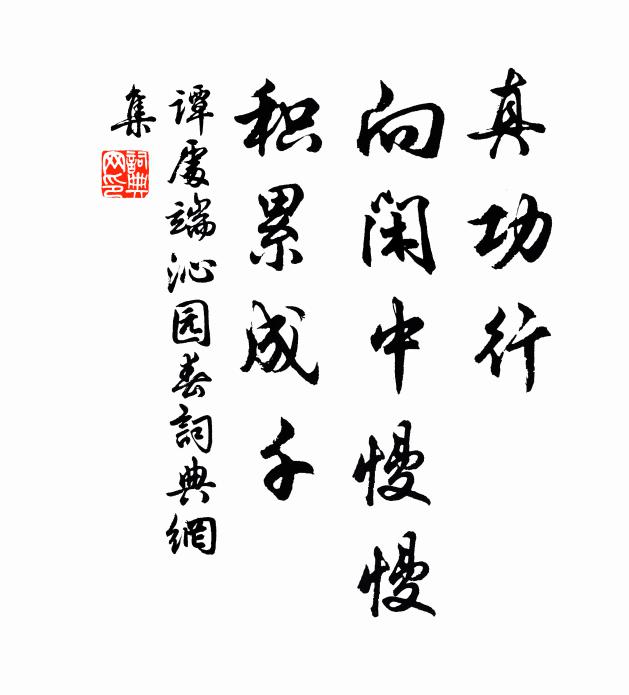 真功行
向闲中慢慢
积累成千
谭處端沁园春詞典網
集
詞典
网印